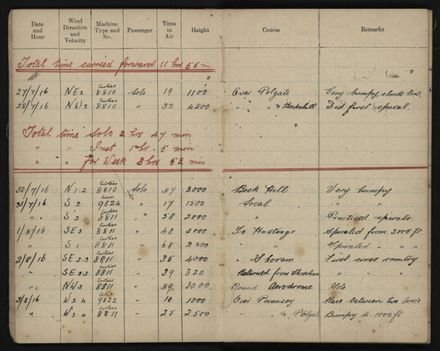 Date and Hour Wind Direction and Velocity Machine Type and No. Passenger Time in Air Height Course Remarks
Total time carried forward, 11 hrs 55 min
27/7/16 NE 2 Curtiss 8810 Solo 19 1100 Over Polgate Very bumpy clouds low
28/7/16 NW 2 Curtiss 8810 " 32 4200 " " & Did first spiral
Total time Solo 2 hrs 47 min
" " Inst 1 hr. 5 min
" " for Week 3 hrs 52 min
30/7/16 N 1-2 Curtiss 8810 Solo 37 2000 Beck Hill Very bumpy
31/7/16 S 2 Avro 9824 " 17 1500 Local " "
" " S 2 Curtiss 8811 " 58 2000 " Practiced spirals
1/8/16 SE 2 Curtiss 8811 " 40 To Hastings Spiraled from 3000 ft
" S 1 Curtiss 8811 " 68 " " Spiraled " "
2/8/16 SE 2-3 Curtiss 8811 " 35 4000 " Shoram First cross country
" SE 2-3 Curtiss 8811 " 39 320 Returned from Shoreham
" NW 2 Curtiss 8811 " 39 3000 Round Aerodrome
3/8/16 W 3-4 Avro 9822 " 10 1000 Over Pevencey Race between two Avros
" W 3-4 Curtiss 8811 " 25 2500 " & Polgate Bumpy to 1000 ft